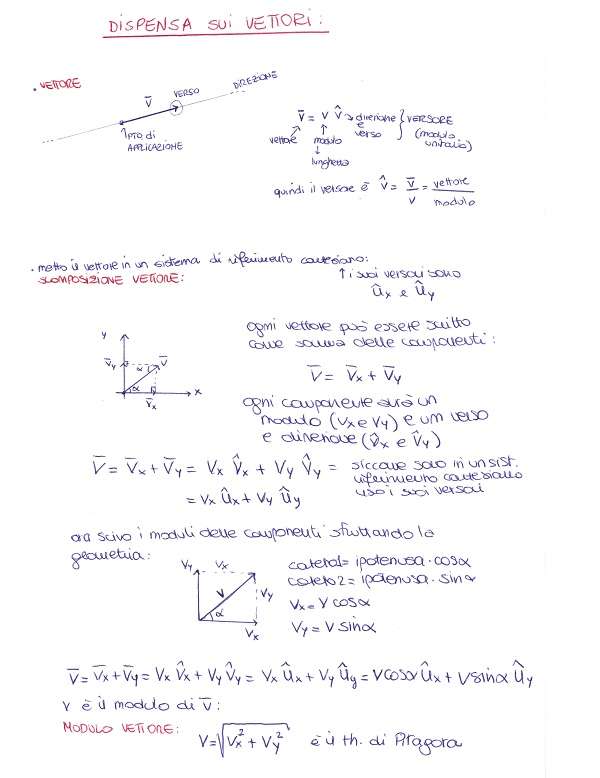 DISPENSA SUI VETTORI:
• VETTORE
V̅
VERSO
DIREZIONE
PTO di
APPLICAZIONE
V̅ = V V̂ → direzione
e
verso
} VERSORE
(modulo
unitario)
vettore
modulo
↓
lunghezza
quindi il versore è V̂ = V̅/V = vettore/modulo
• metto il vettore in un sistema di riferimento cartesiano:
SCOMPOSIZIONE VETTORE:
↑ i suoi versori sono
Ûx e Ûy
ogni vettore può essere scritto
come somma delle componenti:
V̅ = V̅x + V̅y
y
V̅y
α
V̅
α
x
V̅x
ogni componente avrà un
modulo (Vx e Vy) e un verso
e direzione (V̂x e V̂y)
V̅ = V̅x + V̅y = Vx V̂x + Vy V̂y = siccome sono in un sist.
riferimento cartesiano
uso i suoi versori
= Vx Ûx + Vy Ûy
ora scrivo i moduli delle componenti sfruttando la
geometria:
Vy
Vx
V
Vy
α
Vx
cateto1 = ipotenusa · cosα
cateto2 = ipotenusa · sinα
Vx = V cosα
Vy = V sinα
V̅ = V̅x + V̅y = Vx V̂x + Vy V̂y = Vx Ûx + Vy Ûy = V cosα Ûx + V sinα Ûy
V è il modulo di V̅:
MODULO VETTORE: V = √(Vx² + Vy²) è il th. di Pitagora